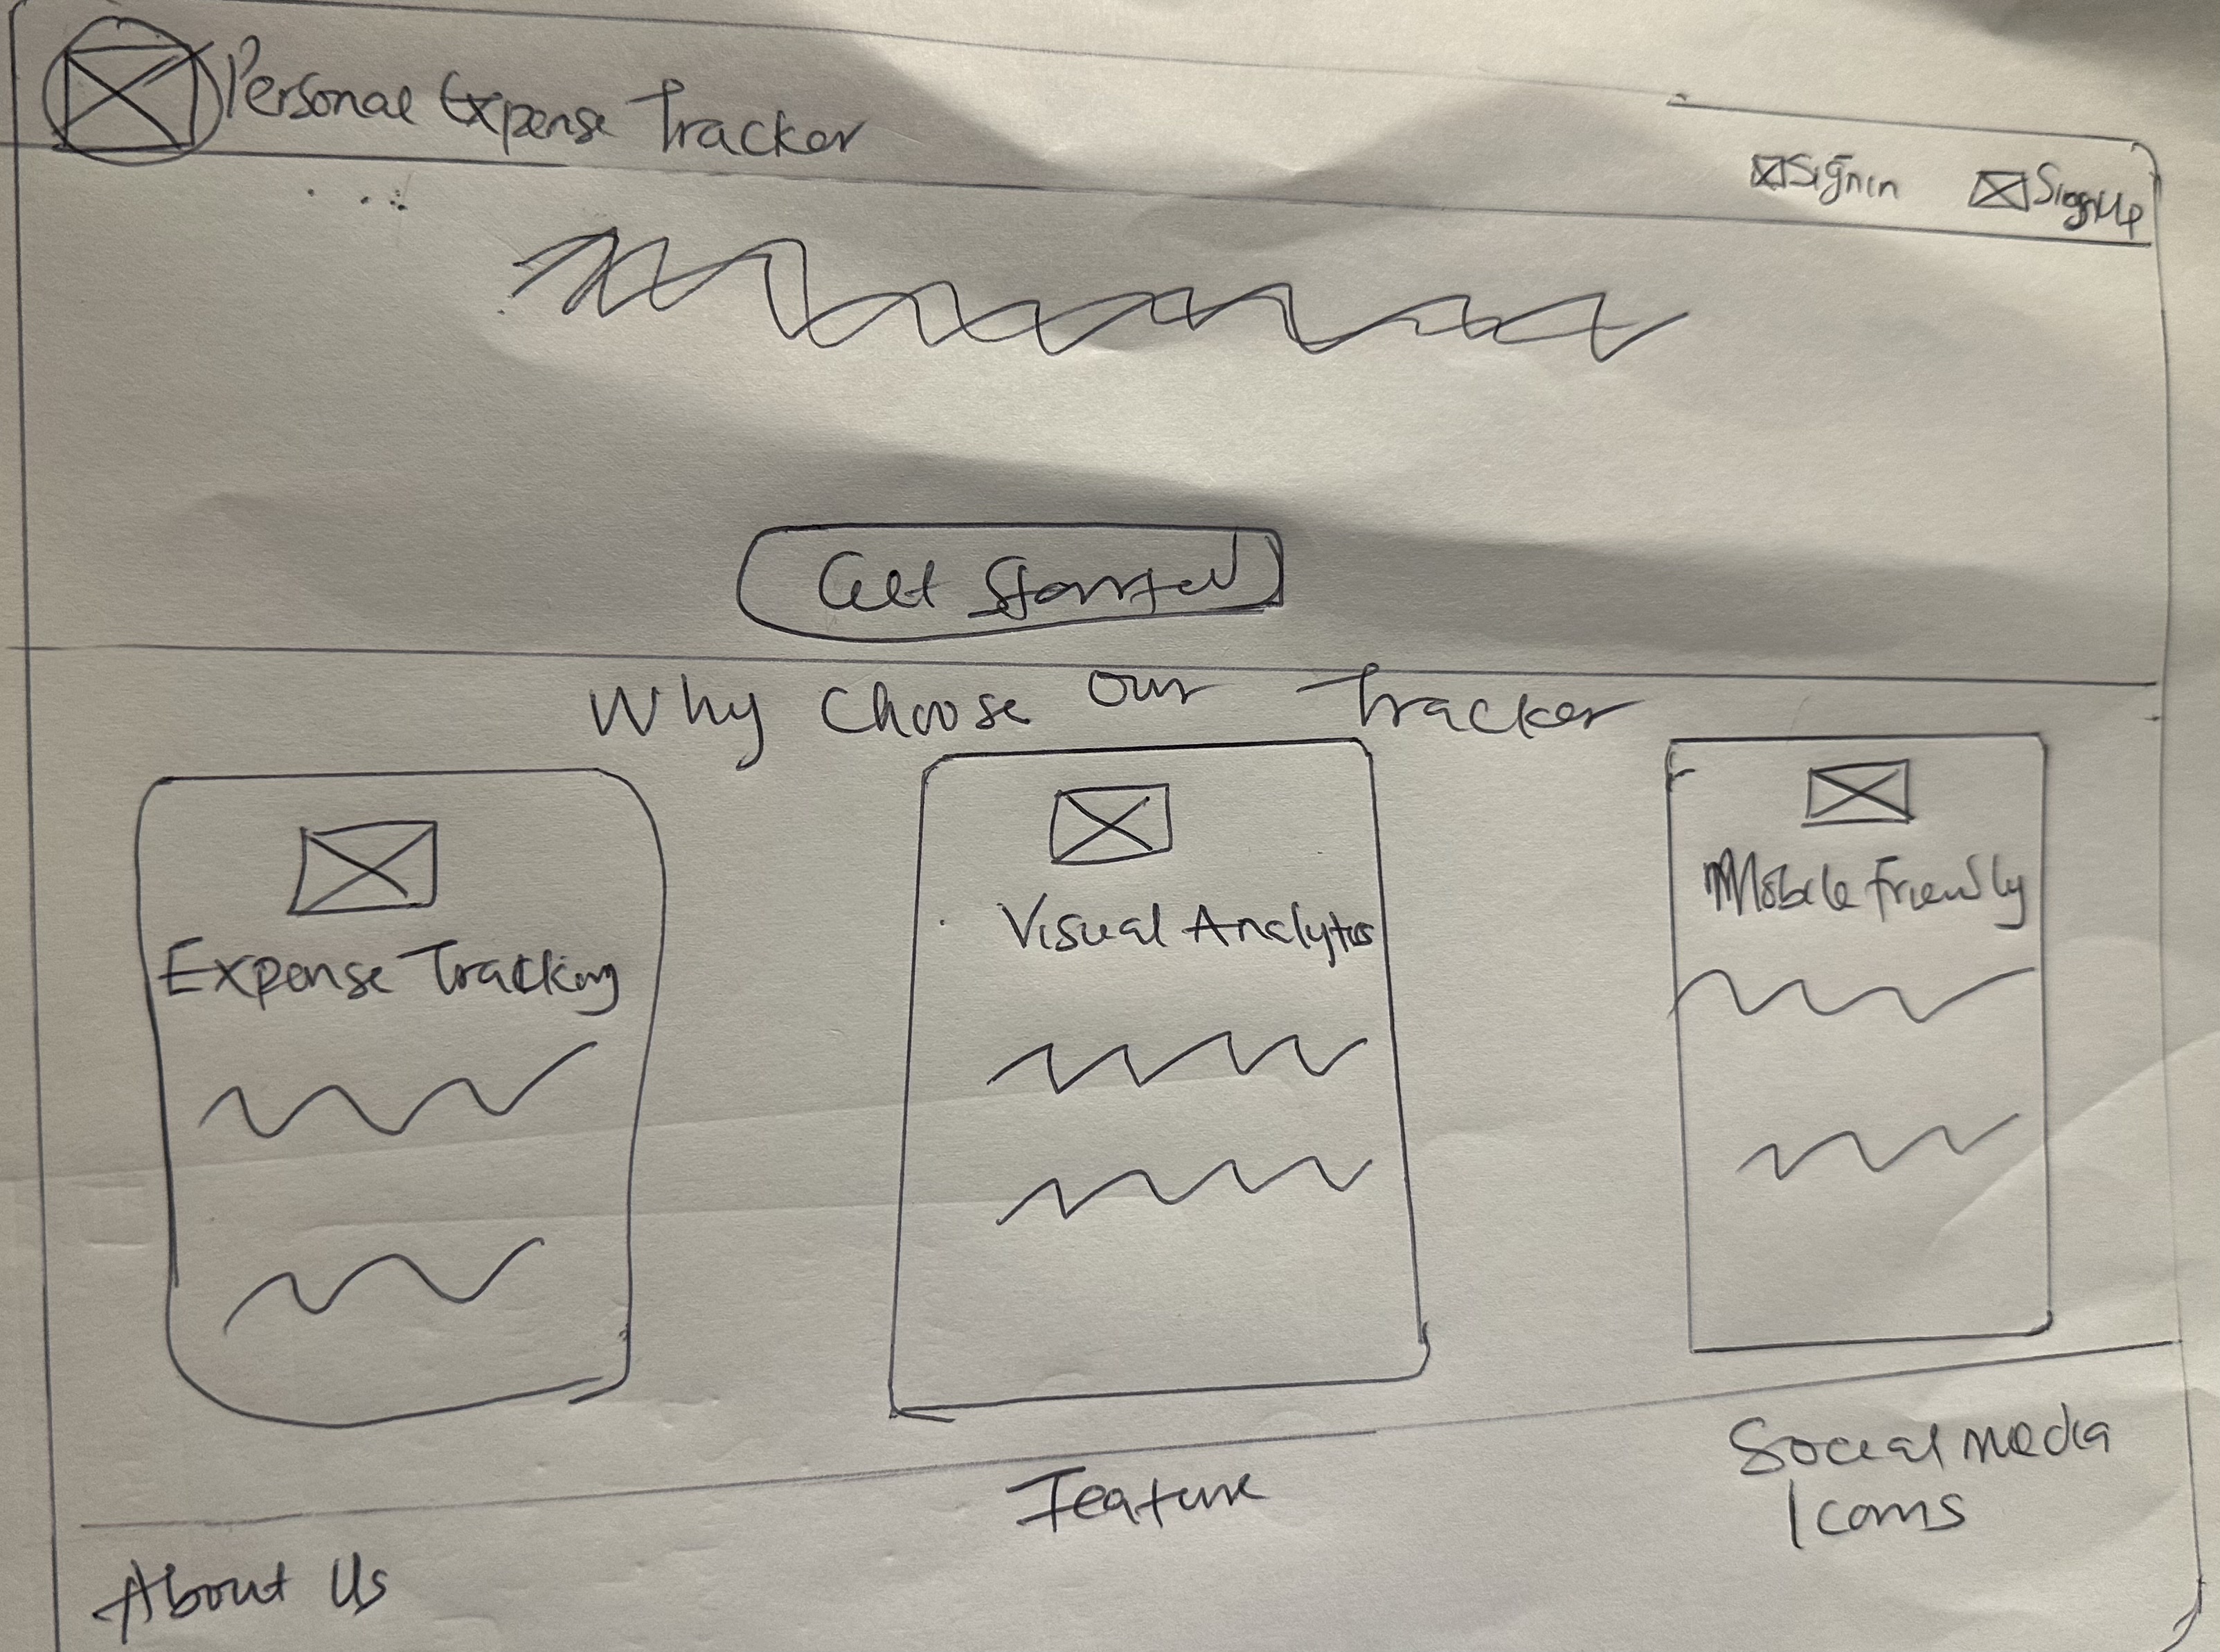 Personal Expense Tracker
Signin SignUp
Get Started
Why Choose Our Tracker
Expense Tracking
Visual Analytics
Mobile Friendly
About Us
Feature
Social media
Icons